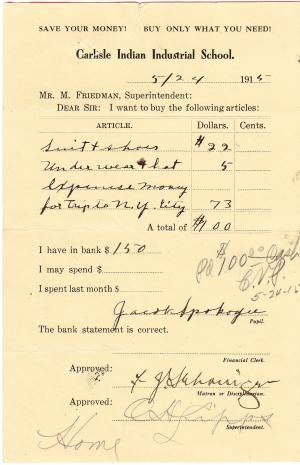 SAVE YOUR MONEY! BUY ONLY WHAT YOU NEED!
Carlisle Indian Industrial School.
5/24 1915
MR. M. FRIEDMAN, Superintendent:
DEAR SIR: I want to buy the following articles:
ARTICLE. Dollars. Cents.
Suit & shoes $22
Underwear & hat 5
Expense money
for trip to N.Y. City 73
A total of $100
I have in bank $ 150
I may spend $
I spent last month $
pd $100.00 Cash
5-24-15
Jacob Spokogee
Pupil.
The bank statement is correct.
Financial Clerk.
Approved:
Matron or Disciplinarian.
Approved:
Superintendent.
Home